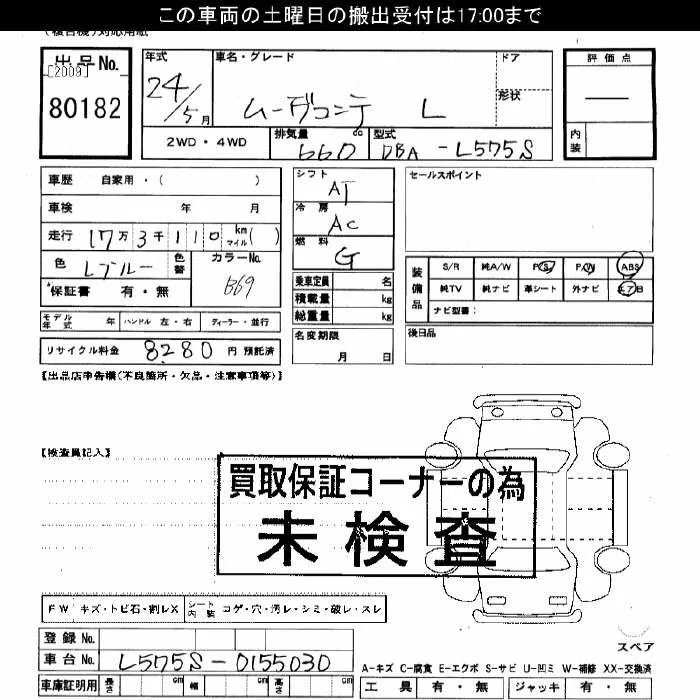 この車両の土曜日の搬出受付は17:00まで
(複合機)対応用紙
出品No.
[2009]
80182
年式 24/5月
車名・グレード ムーヴコンテ L
ドア
形状
評価点
―
内装
2WD・4WD
排気量 660 cc
型式 DBA-L575S
車歴 自家用・( )
車検 年 月
走行 17万3千110 km マイル( )
色 Lブルー 色替 カラーNo. B69
保証書 有・無
モデル年式 年 ハンドル 左・右 ディーラー・並行
リサイクル料金 8280 円 預託済
シフト AT
冷房 AC
燃料 G
乗車定員 名
積載量 kg
総重量 kg
名変期限
月 日
セールスポイント
装備品
S/R 純A/W P/S P/W ABS
純TV 純ナビ 革シート 外ナビ エアB
ナビ型番:
後日品
【出品店申告欄(不良箇所・欠品・注意事項等)】
【検査員記入】
買取保証コーナーの為
未検査
FW キズ・トビ石・割レX シート内装 コゲ・穴・汚レ・シミ・破レ・スレ
登録No.
車台No. L575S-0155030
車庫証明用 長さ cm 幅 cm 高さ cm
スペア
A-キズ C-腐食 E-エクボ S-サビ U-凹ミ W-補修 XX-交換済
工具 有・無 ジャッキ 有・無